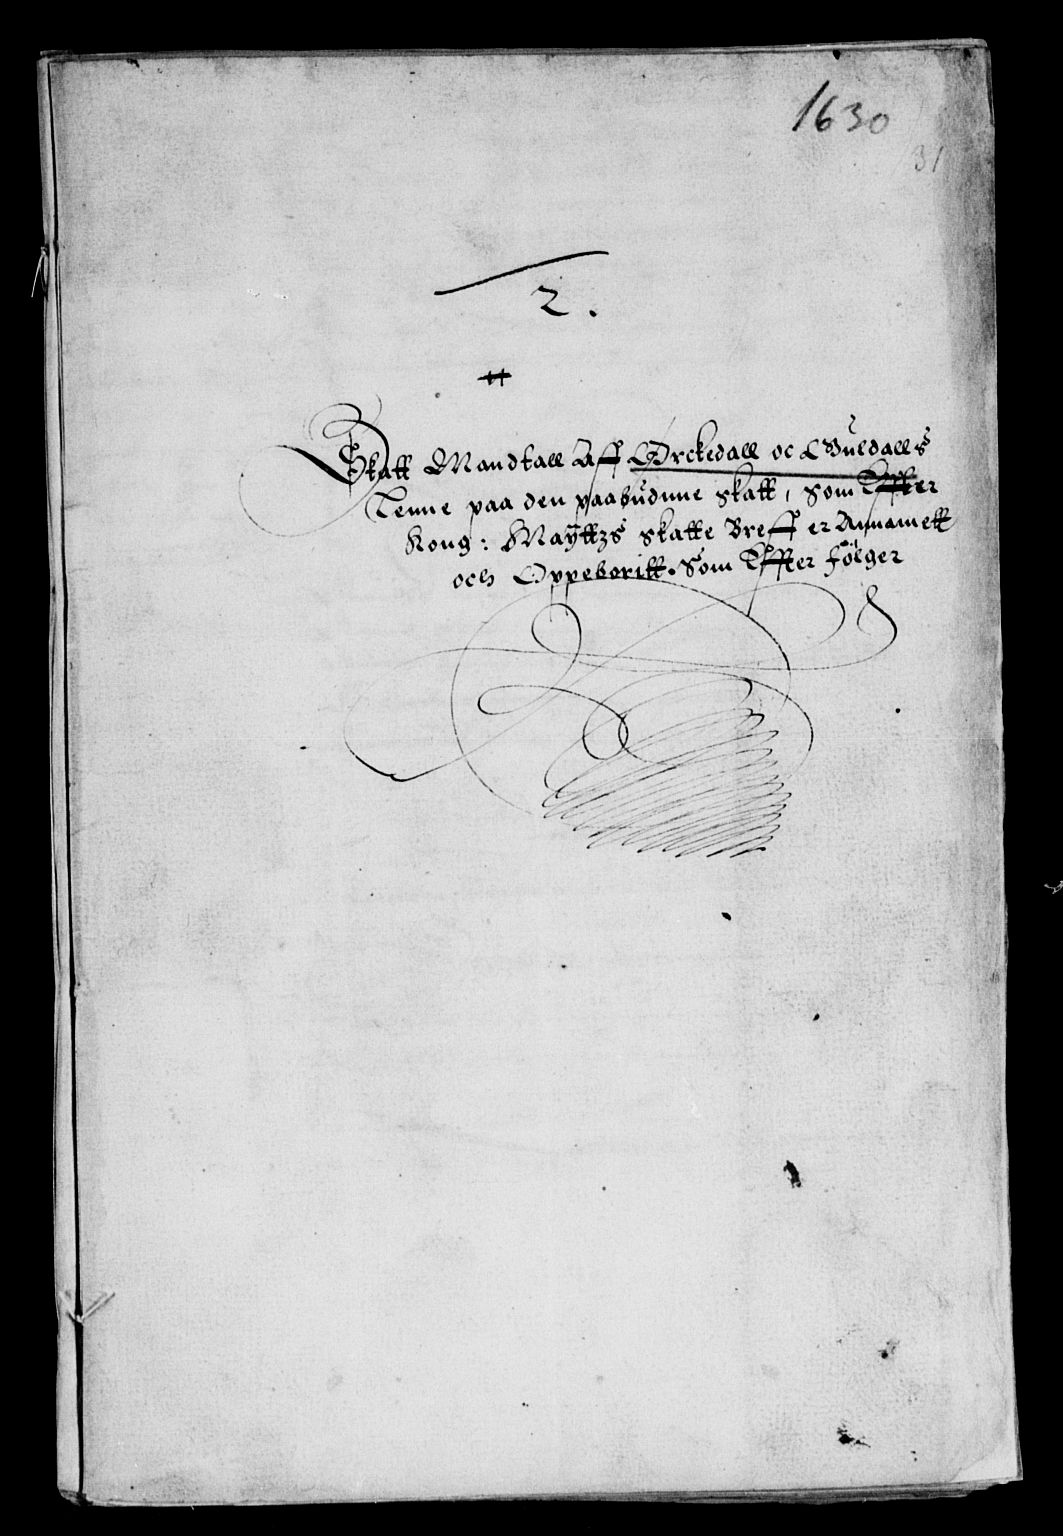 1630
31
2.
Skatt Mandtall Aff Ørckedall oc Guldalls
Lenne paa den paabudnne skatt, som Effter
Kong: Mayttzs skatte Breff er Annamett
och Oppeboritt. Som Effter følger